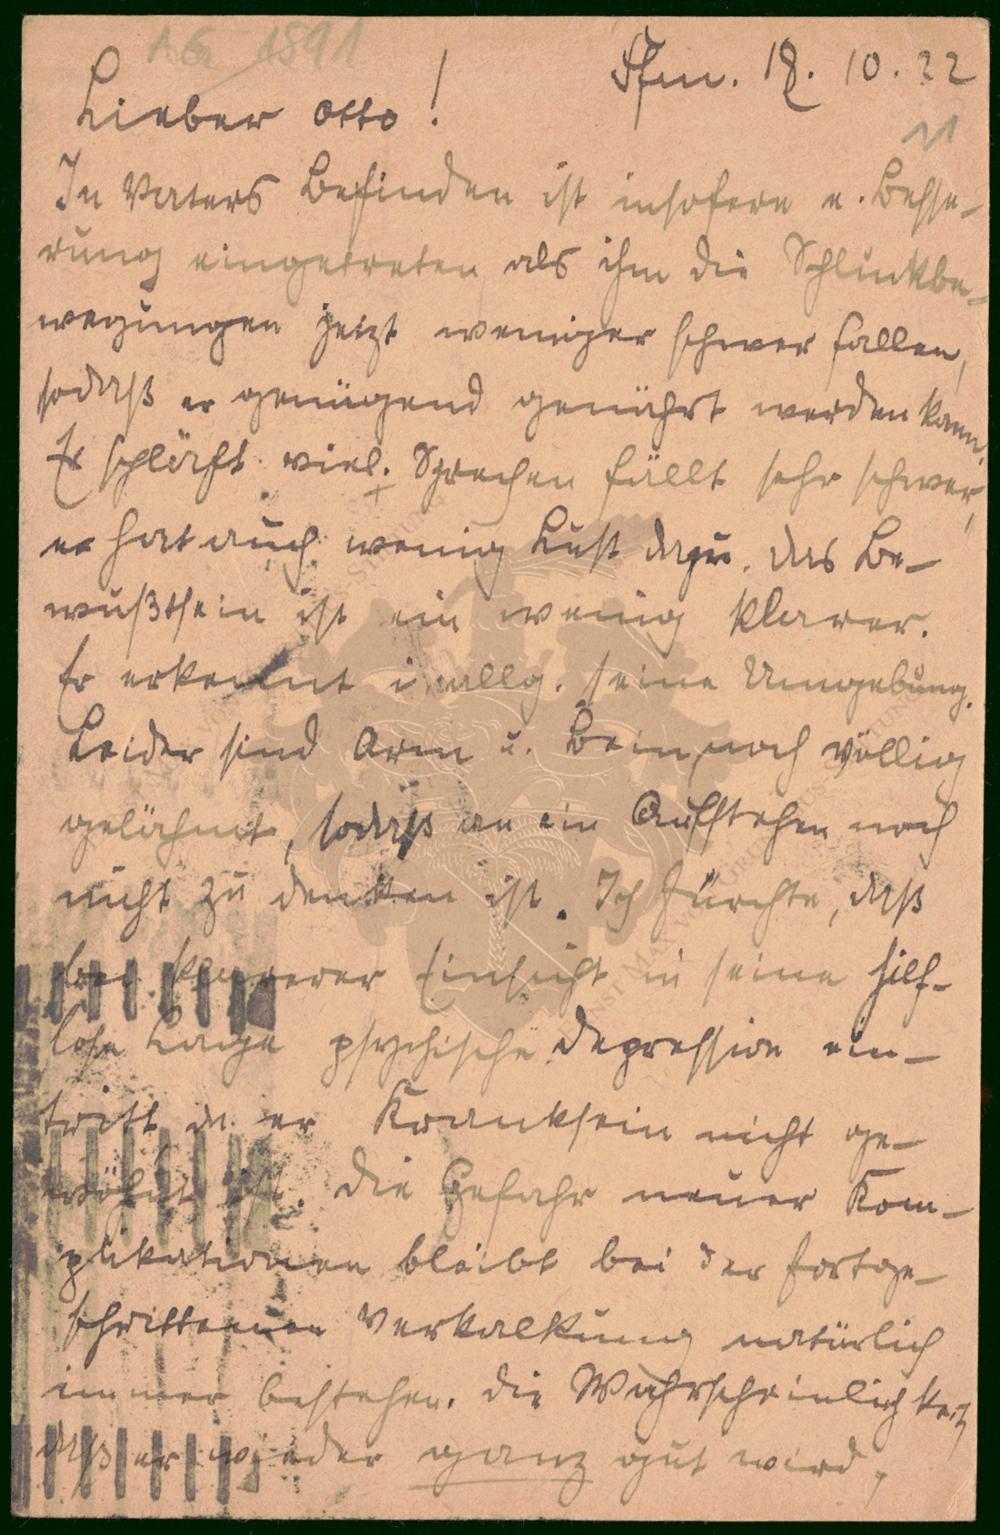 AG 1891
Ffm. 18. 10. 22
Lieber Otto!
In Vaters Befinden ist insofern e. Besse-
rung eingetreten als ihm die Schluckbe-
wegungen jetzt weniger schwer fallen,
sodaß er genügend genährt werden kann.
Er schläft viel. Sprechen fällt sehr schwer,
er hat auch wenig Lust dazu. Das Be-
wußtsein ist ein wenig klarer.
Er erkennt i. allg. seine Umgebung.
Leider sind Arm u. Bein noch völlig
gelähmt, sodaß an ein Aufstehen noch
nicht zu denken ist. Ich fürchte, daß
bei klarerer Einsicht in seine hilf-
lose Lage psychische Depression ein-
tritt da er Kranksein nicht ge-
wöhnt ist. Die Gefahr neuer Kom-
plikationen bleibt bei der fortge-
schrittenen Verkalkung natürlich
immer bestehen. Die Wahrscheinlichkeit
daß er wieder ganz gut wird,